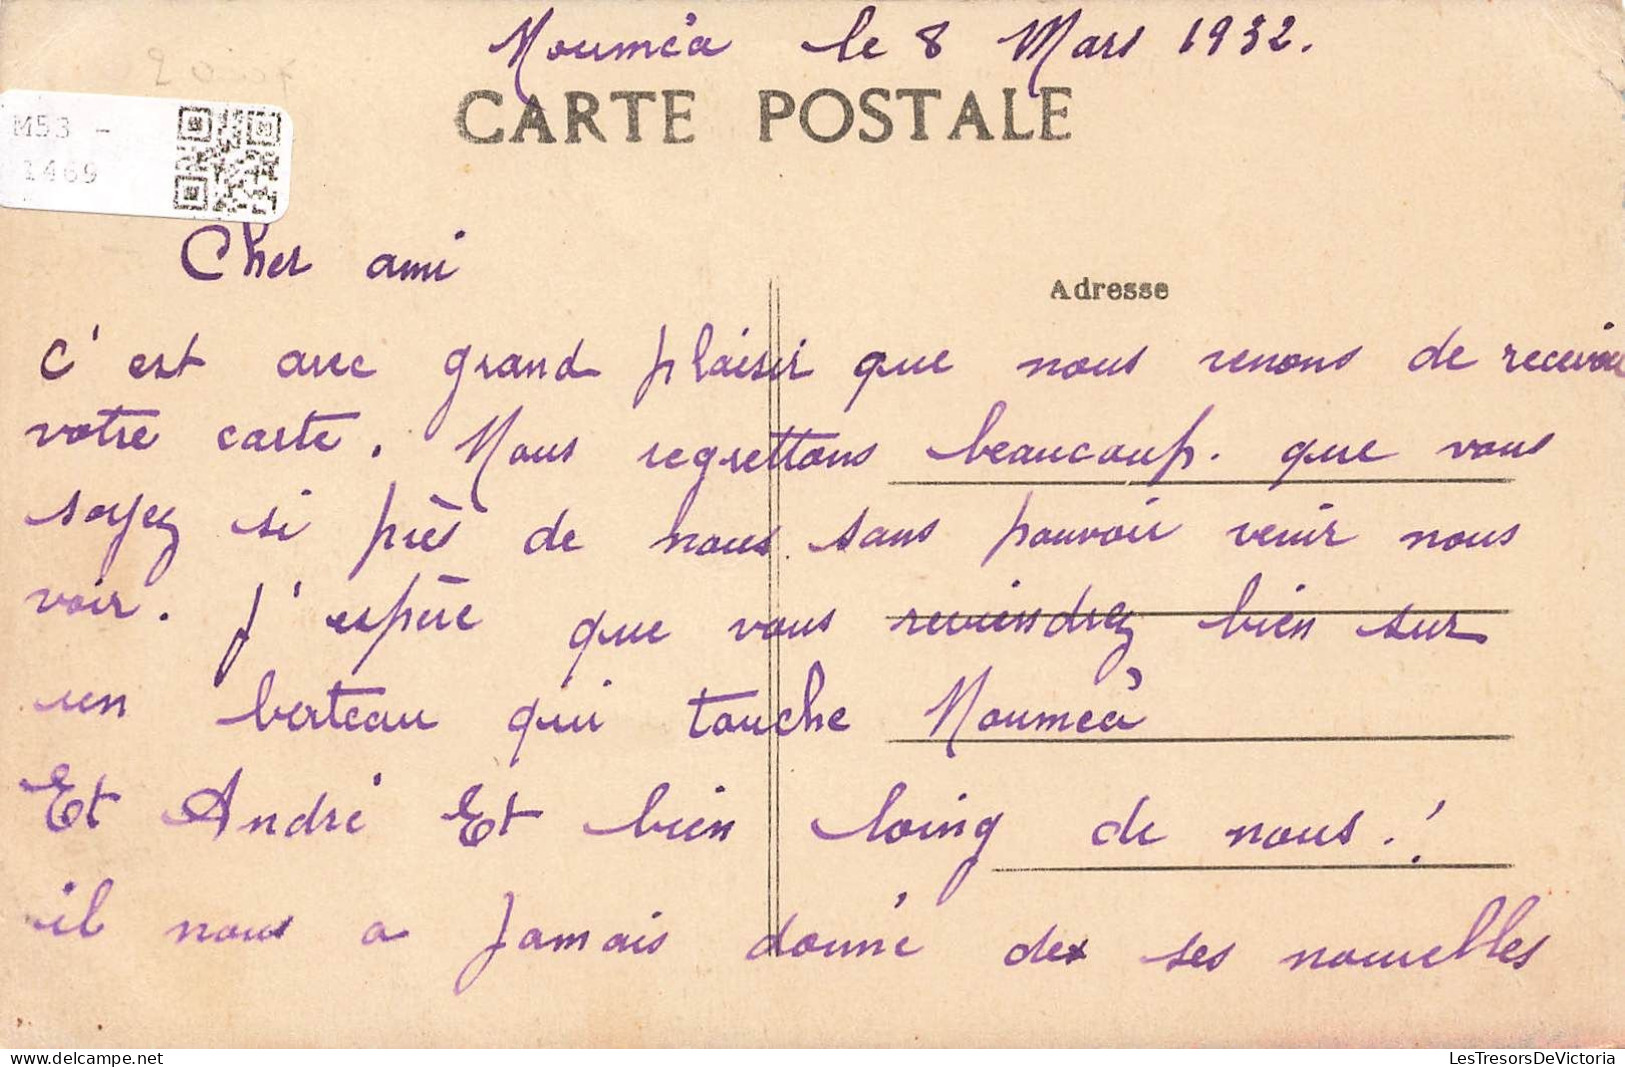 Nouméa le 8 Mars 1932.
CARTE POSTALE
M53 -
1469
Cher ami
Adresse
C'est avec grand plaisir que nous venons de recevoir
votre carte. Nous regrettons beaucoup. que vous
soyez si près de nous sans pouvoir venir nous
voir. J'espère que vous reviendrez bien sur
un berteau qui touche Nouméa
Et André Et bien loing de nous.!
il nous a Jamais donné de ses nouvelles
LesTresorsDeVictoria